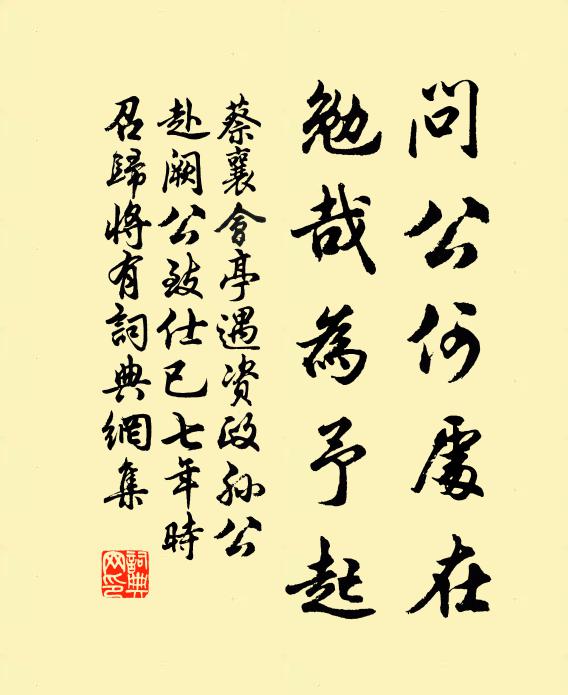 問公何處在
勉哉為予起
蔡襄會亭遇資政孙公
赴阙公致仕已七年時
召歸將有詞典網集
詞典
网印